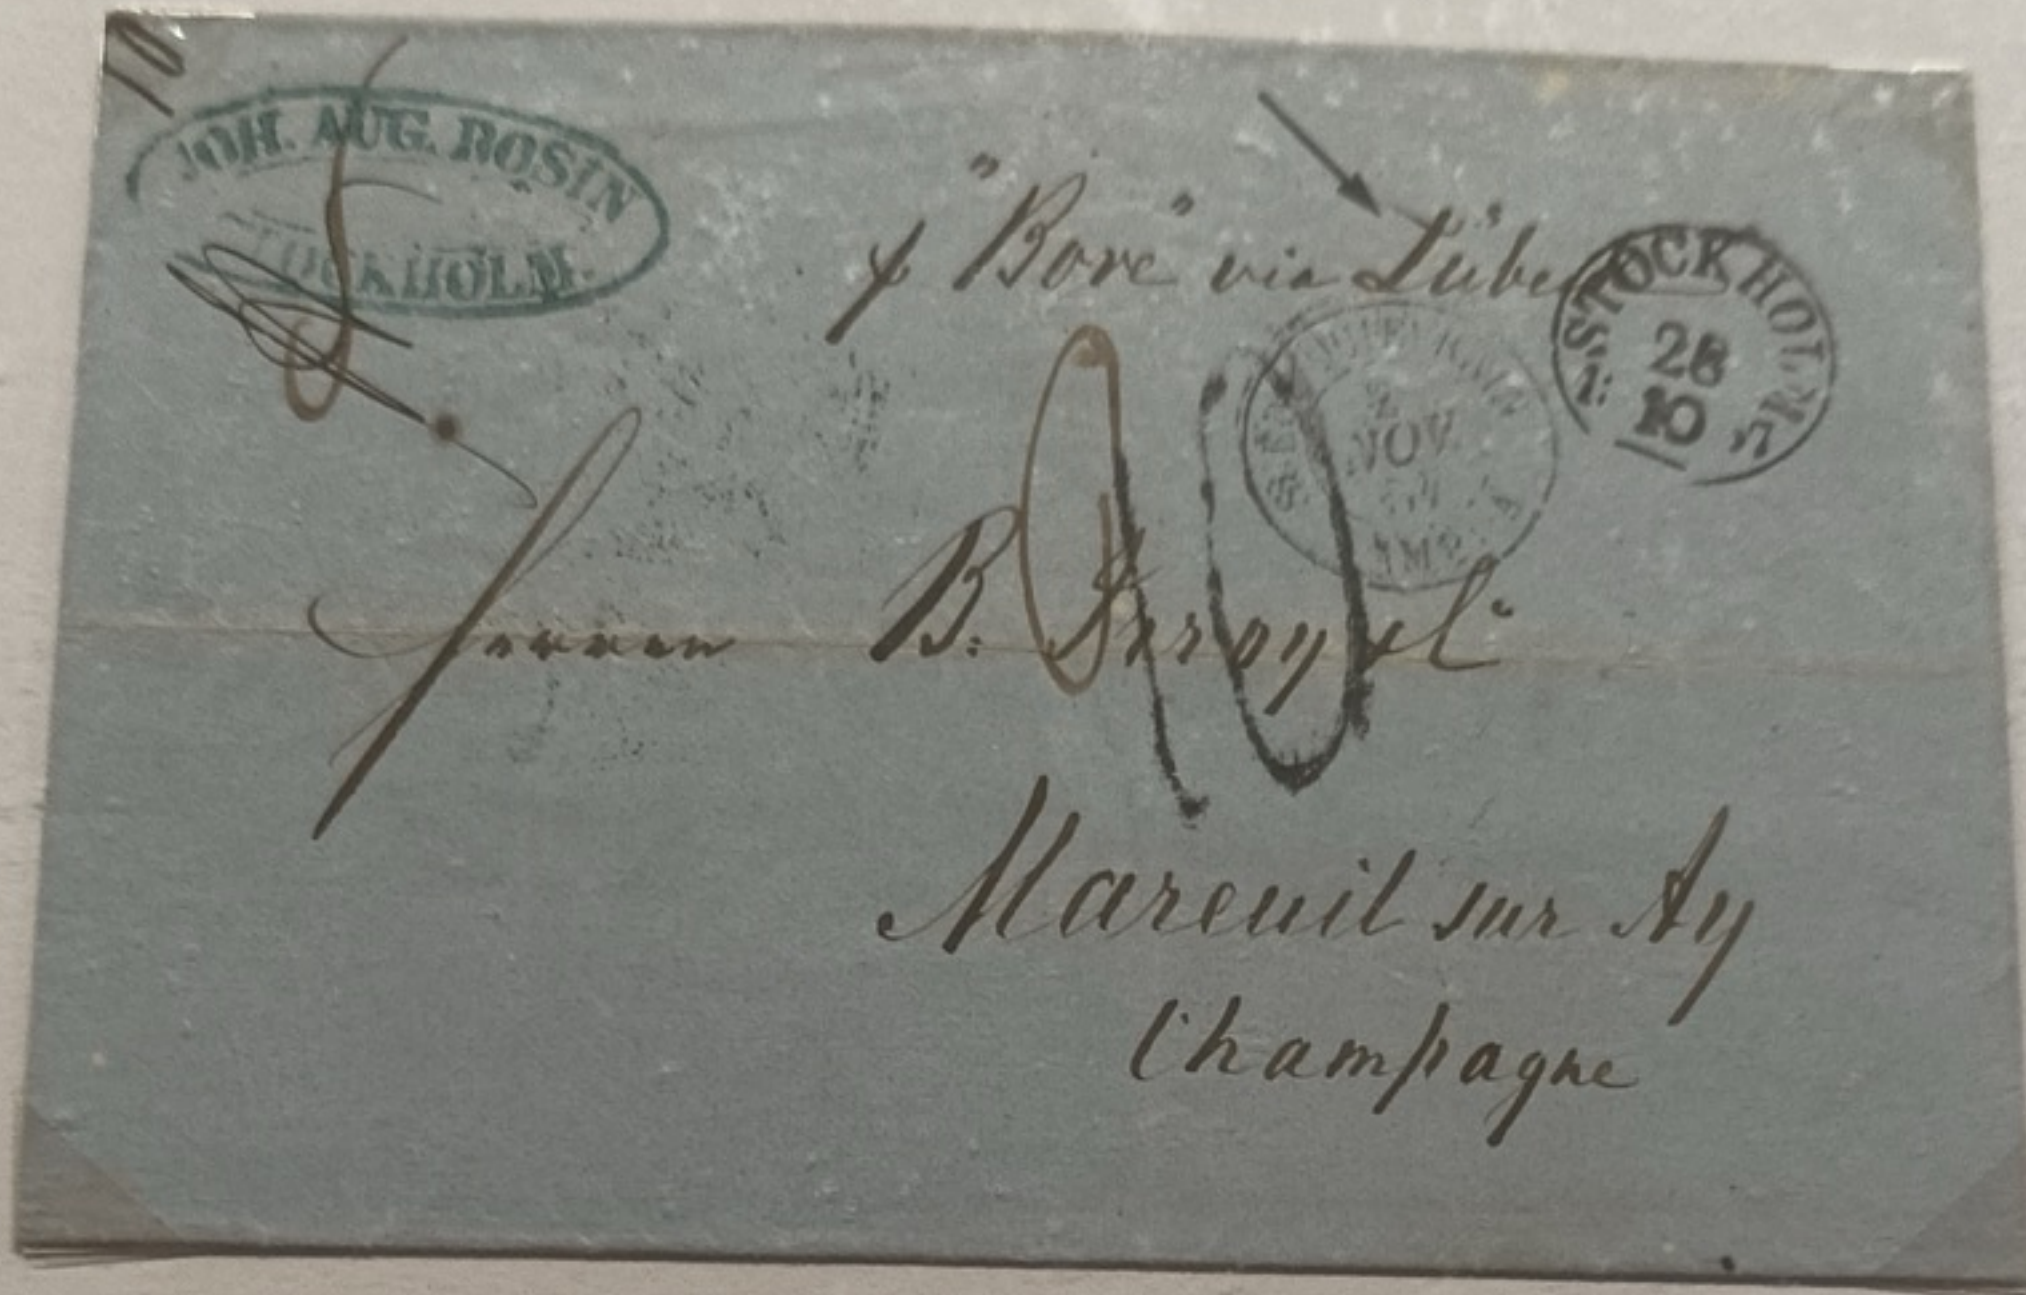 JOH. AUG. ROSIN
STOCKHOLM.
"Bore" via Lübe
STOCKHOLM
28
10
2
NOV.
10
Herren B:
Mareuil sur Ay
Champagne